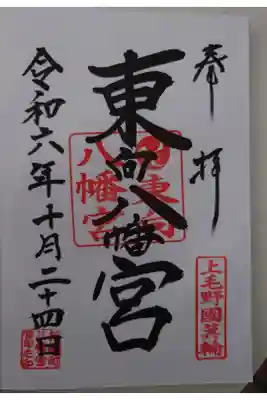 奉拝
上毛野國箕輪
東向八幡宮
東向
八幡宮
令和六年十月二十四日